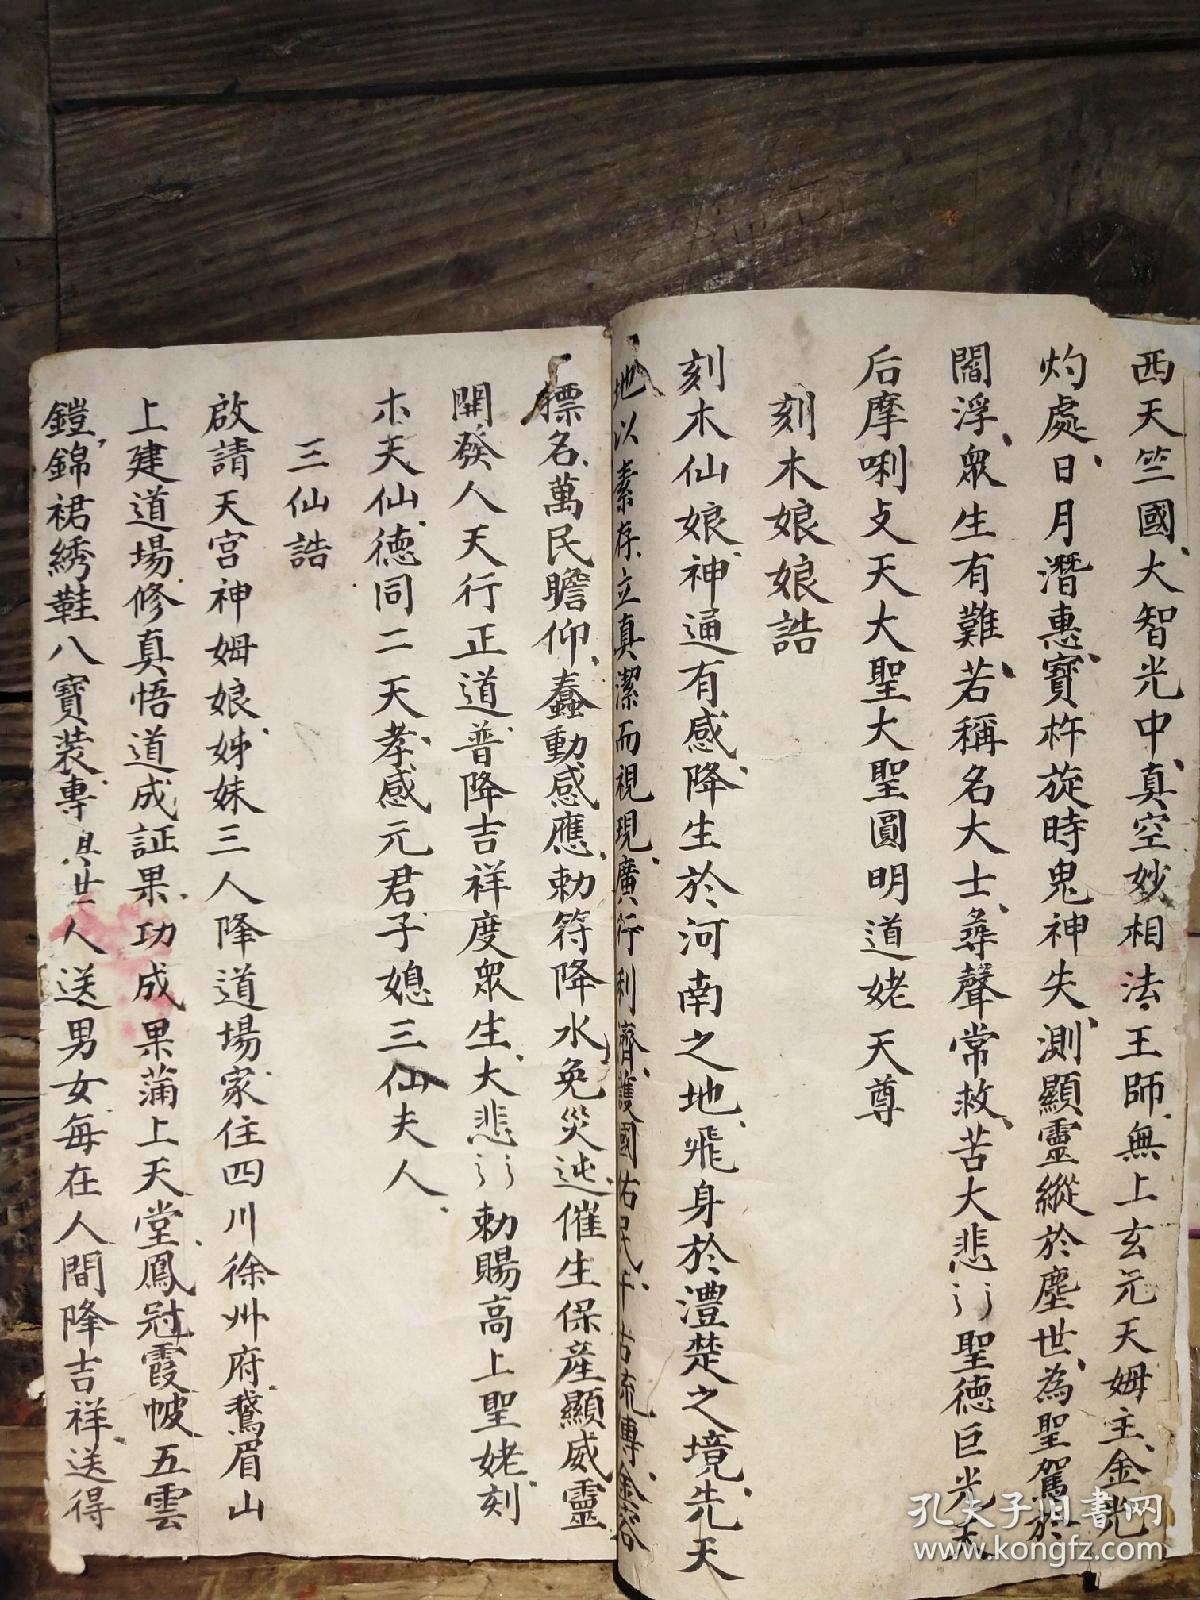 西天竺國大智光中真空妙相法王師無上玄元天姆主金光
灼處日月潛惠寶杵旋時鬼神失測顯靈縱於塵世為聖駕於
閻浮眾生有難若稱名大士尋聲常救苦大悲〻聖德巨光天
后摩唎攴天大聖大聖圓明道姥天尊
刻木娘娘誥
刻木仙娘神通有感降生於河南之地飛身於澧楚之境先天
地以素存立真潔而視現廣行利濟護國佑民千古流傳金容
標名萬民瞻仰蠢動感應勅符降水免災迍催生保產顯威靈
開發人天行正道普降吉祥度眾生大悲〻勅賜高上聖姥刻
木天仙德同二天孝感元君子媳三仙夫人
三仙誥
啟請天宮神姆娘姊妹三人降道場家住四川徐州府鵞眉山
上建道場修真悟道成証果功成果蒲上天堂鳳冠霞帔五雲
鎧錦裙綉鞋八寶裝專與世人送男女每在人間降吉祥送得
孔夫子旧书网
www.kongfz.com